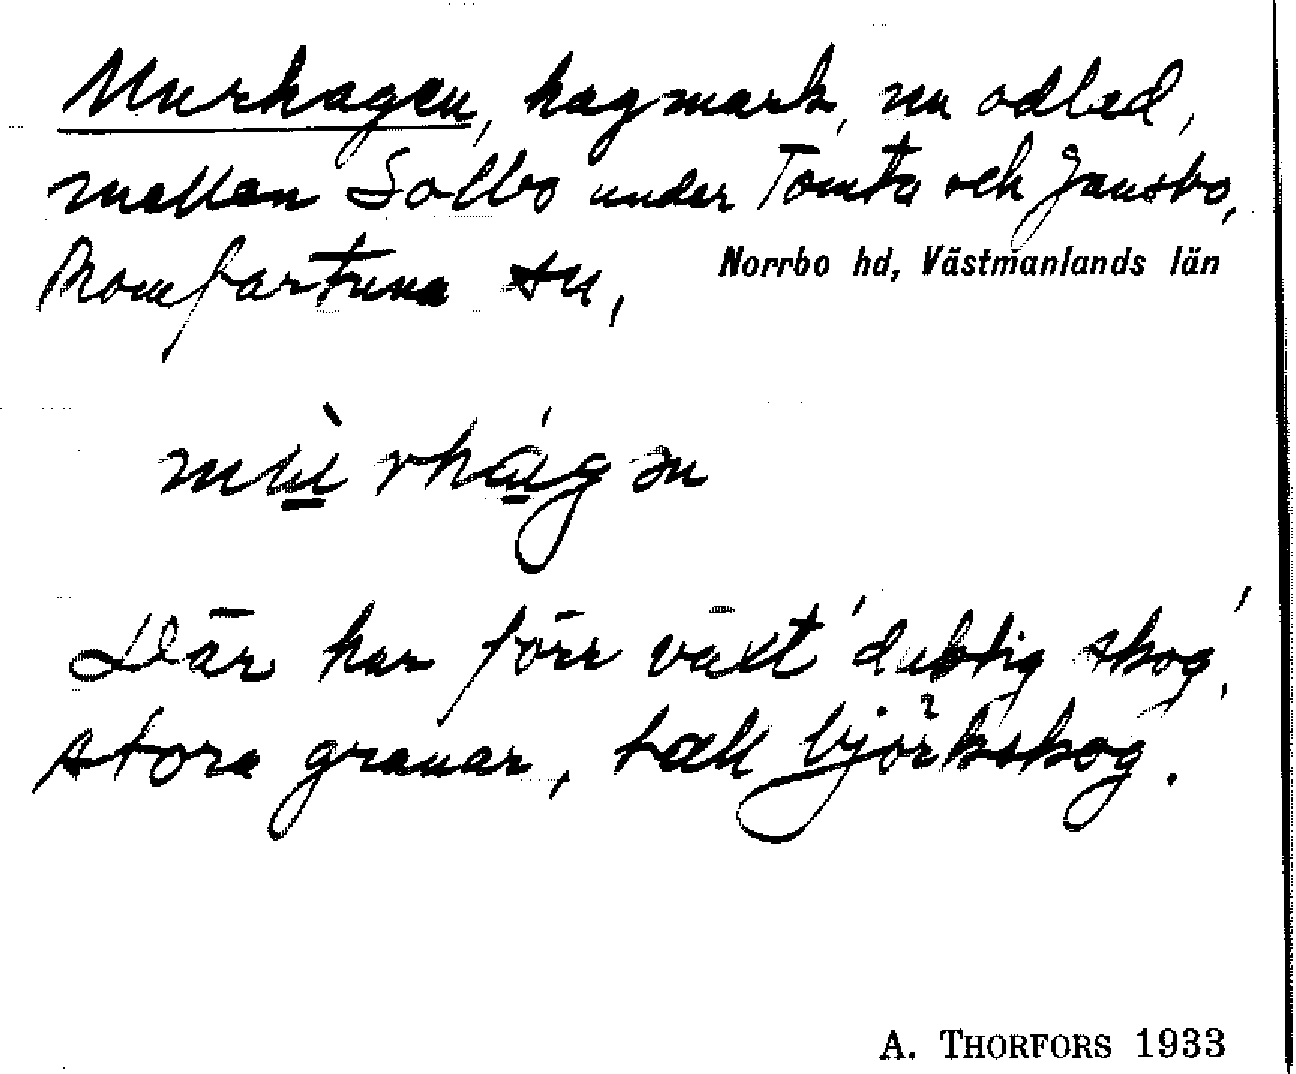 Murhagen, hagmark, nu odlad,
mellan Solbo under Tomta och Jansbo,
Romfartuna sn,
Norrbo hd, Västmanlands län
mùrhágen
Där har förr växt 'duktig skog',
stora granar, tall björkskog.
A. THORFORS 1933